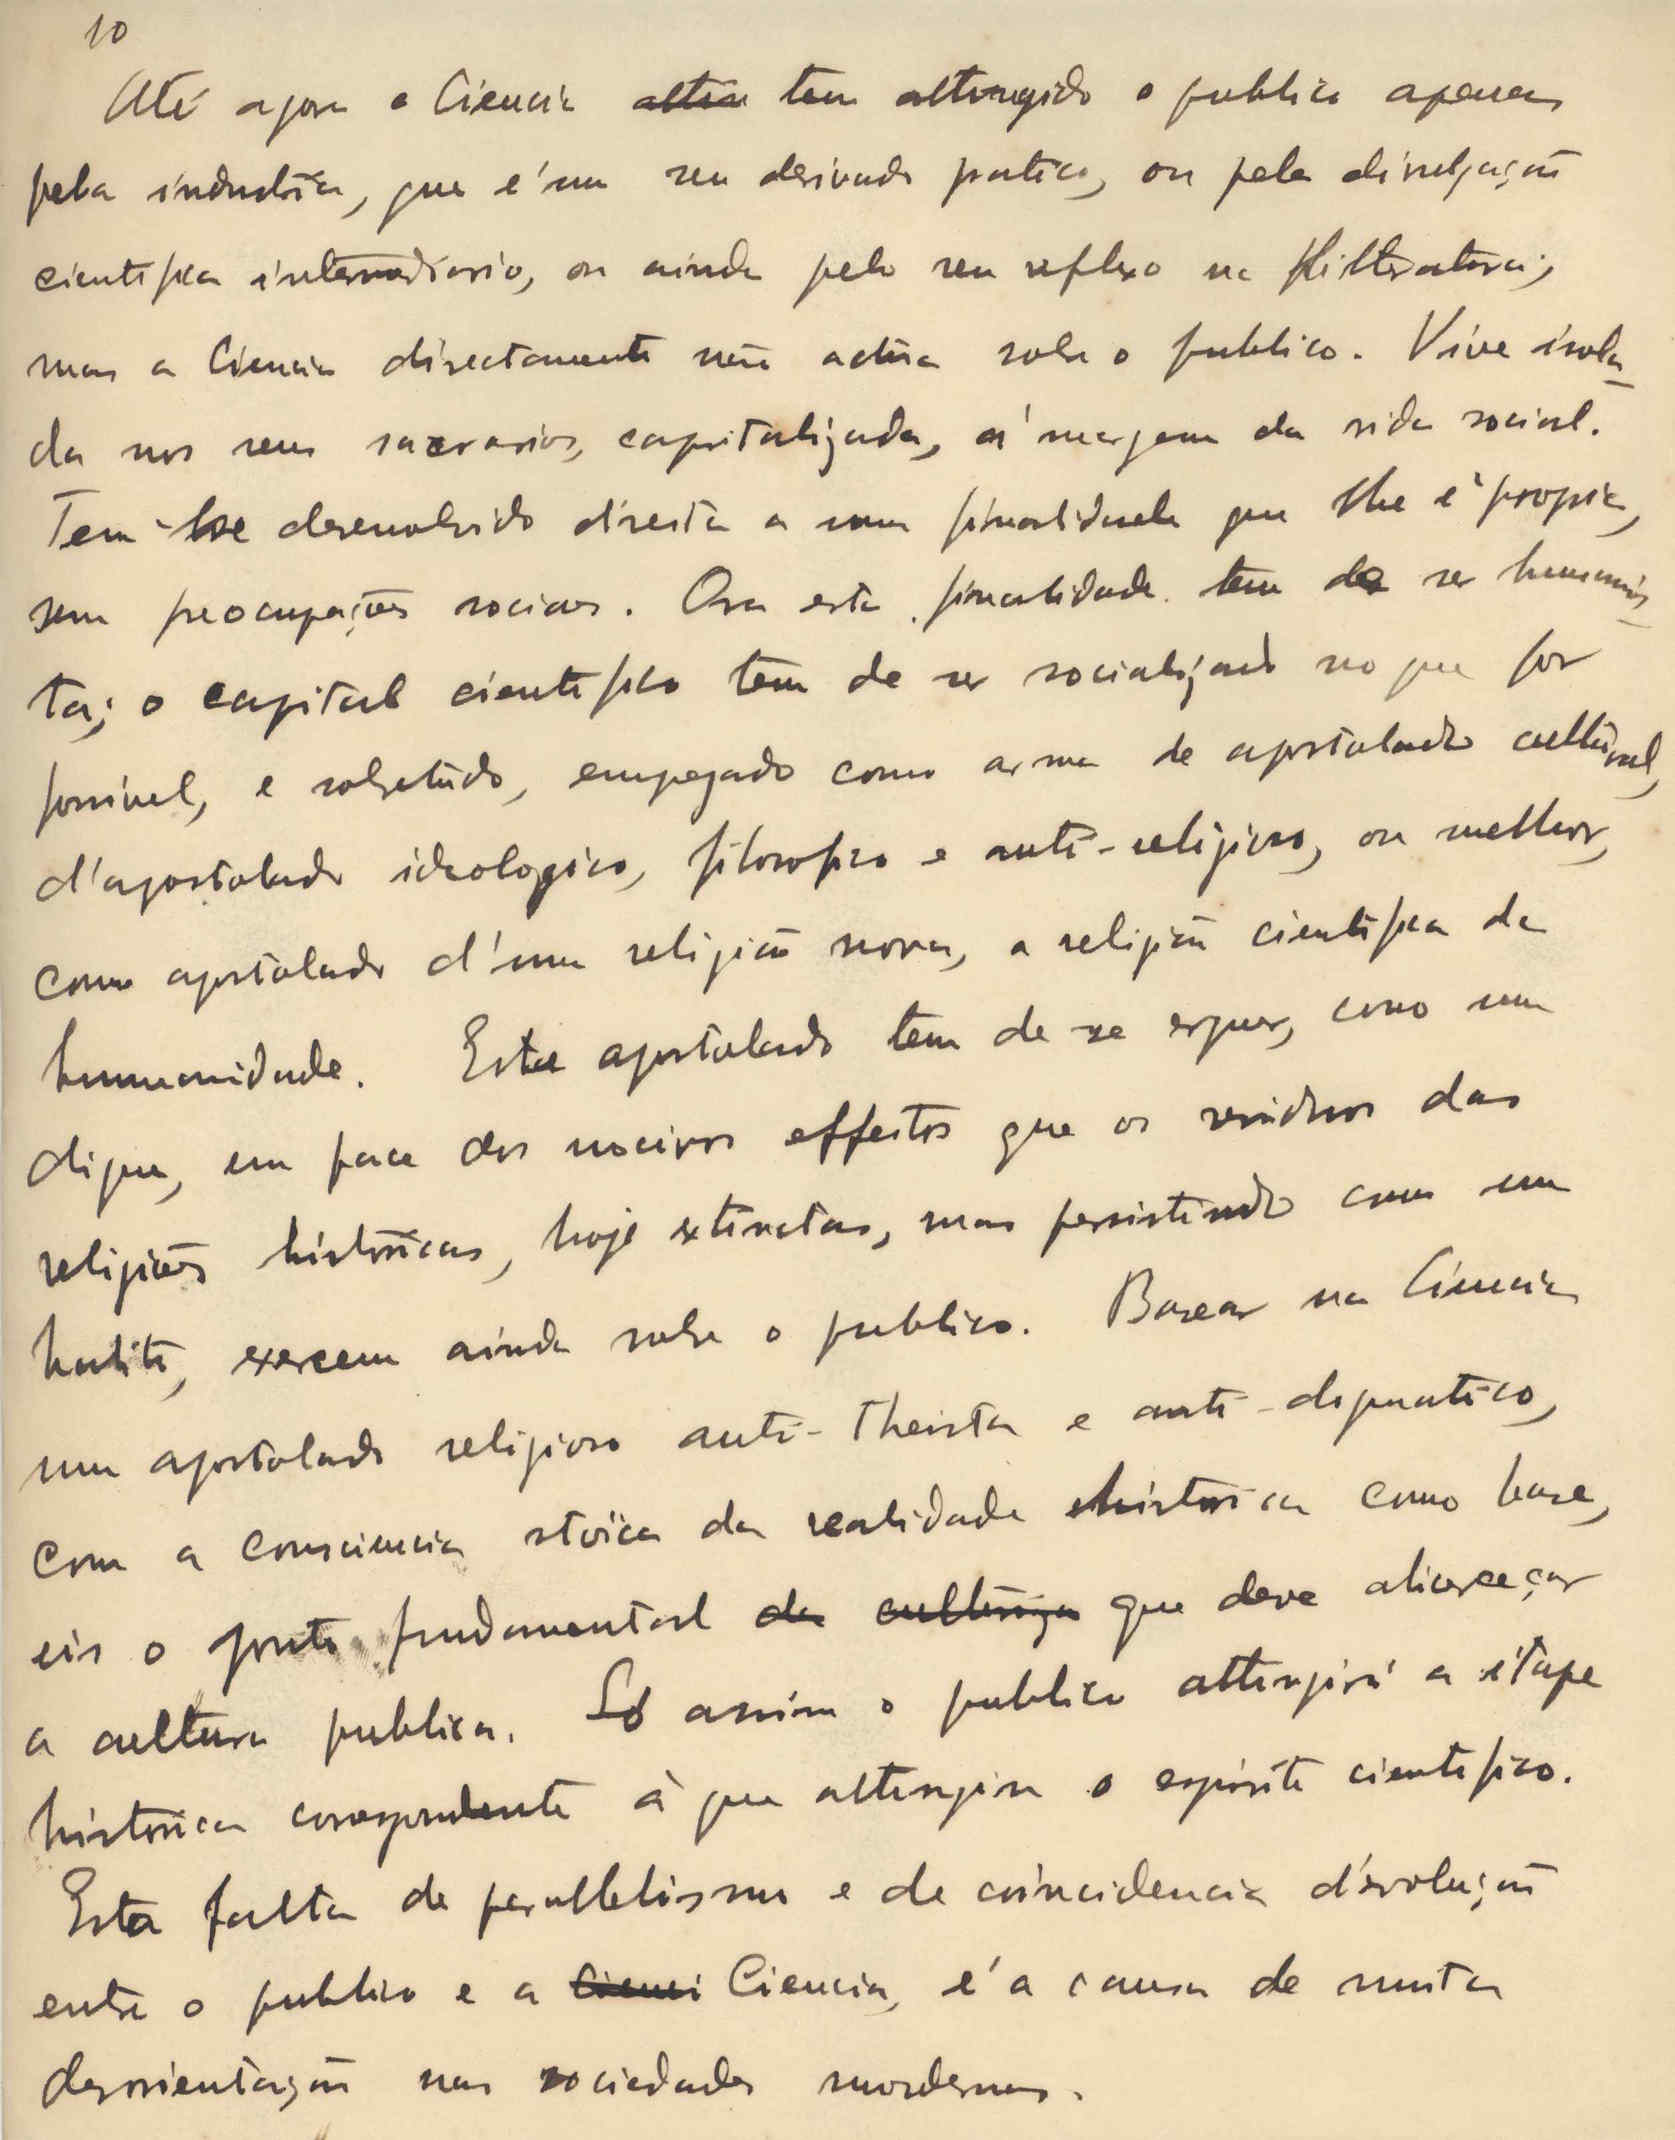 10
Até agora a Ciencia attin tem attingido o publico apenas
pela industria, que é um seu derivado pratico, ou pela divulgação
cientifica intermediario, ou ainda pelo seu reflexo na litteratura;
mas a Ciencia directamente não actúa sobre o publico. Vive isola-
da nos seus sacrarios, capitalizada, á margem da vida social.
Tem-se desenvolvido direita a uma finalidade que lhe é propria,
sem preocupações sociaes. Ora esta finalidade tem de ser humanis-
ta; o capital cientifico tem de ser socializado no que for
possivel, e sobretudo, empregado como arma de apostolado cultural,
d'apostolado ideologico, filosofico e anti-religioso, ou melhor,
como apostolado d'uma religião nova, a religião cientifica da
humanidade. Este apostolado tem de se erguer, como um
dique, em face dos nocivos effeitos que os residuos das
religiões históricas, hoje extinctas, mas persistindo como um
habito, exercem ainda sobre o publico. Basear na Ciencia
um apostolado religioso anti-theista e anti-dogmatico,
com a consciencia stoica da realidade historica como base,
eis o ponto fundamental da que deve alicerçar
a cultura publica. Só assim o publico attingirá a étape
histórica correspondente à que attingira o espirito cientifico.
Esta falta de parallelismo e de coincidencia d'evolução
entre o publico e a Cienci Ciencia, é a causa de muita
desorientação nas sociedades modernas.